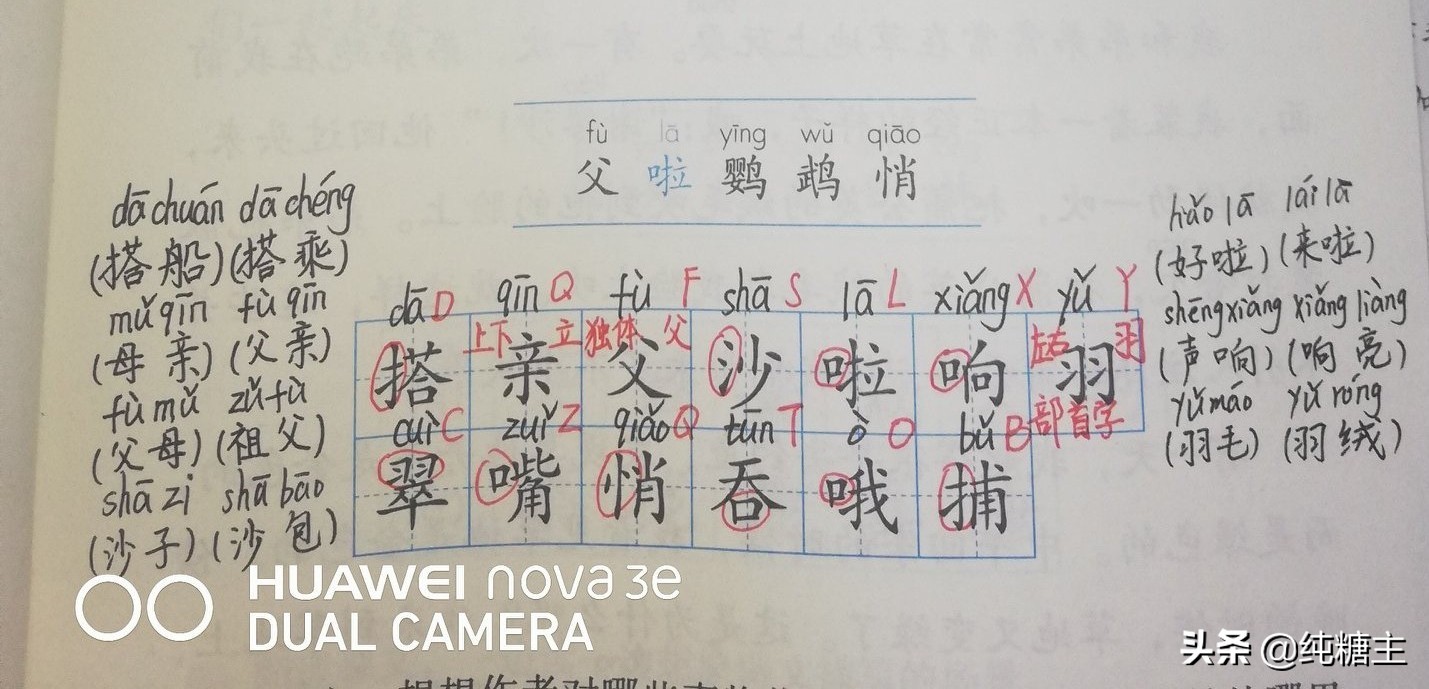 fù lā yīng wǔ qiāo
父 啦 鹦 鹉 悄
dā chuán dā chéng
(搭船)(搭乘)
mǔ qīn fù qīn
(母亲)(父亲)
fù mǔ zǔ fù
(父母)(祖父)
shā zi shā bāo
(沙子)(沙包)
dā D qīn Q fù F shā S lā L xiǎng X yǔ Y
上下 立 独体 父 左右 羽
搭 亲 父 沙 啦 响 羽
部首字
cuì C zuǐ Z qiǎo Q tūn T ò O bǔ B
翠 嘴 悄 吞 哦 捕
hǎo lā lái lā
(好啦)(来啦)
shēng xiǎng xiǎng liàng
(声响)(响亮)
yǔ máo yǔ róng
(羽毛)(羽绒)
HUAWEI nova 3e
DUAL CAMERA
头条 @纯糖主